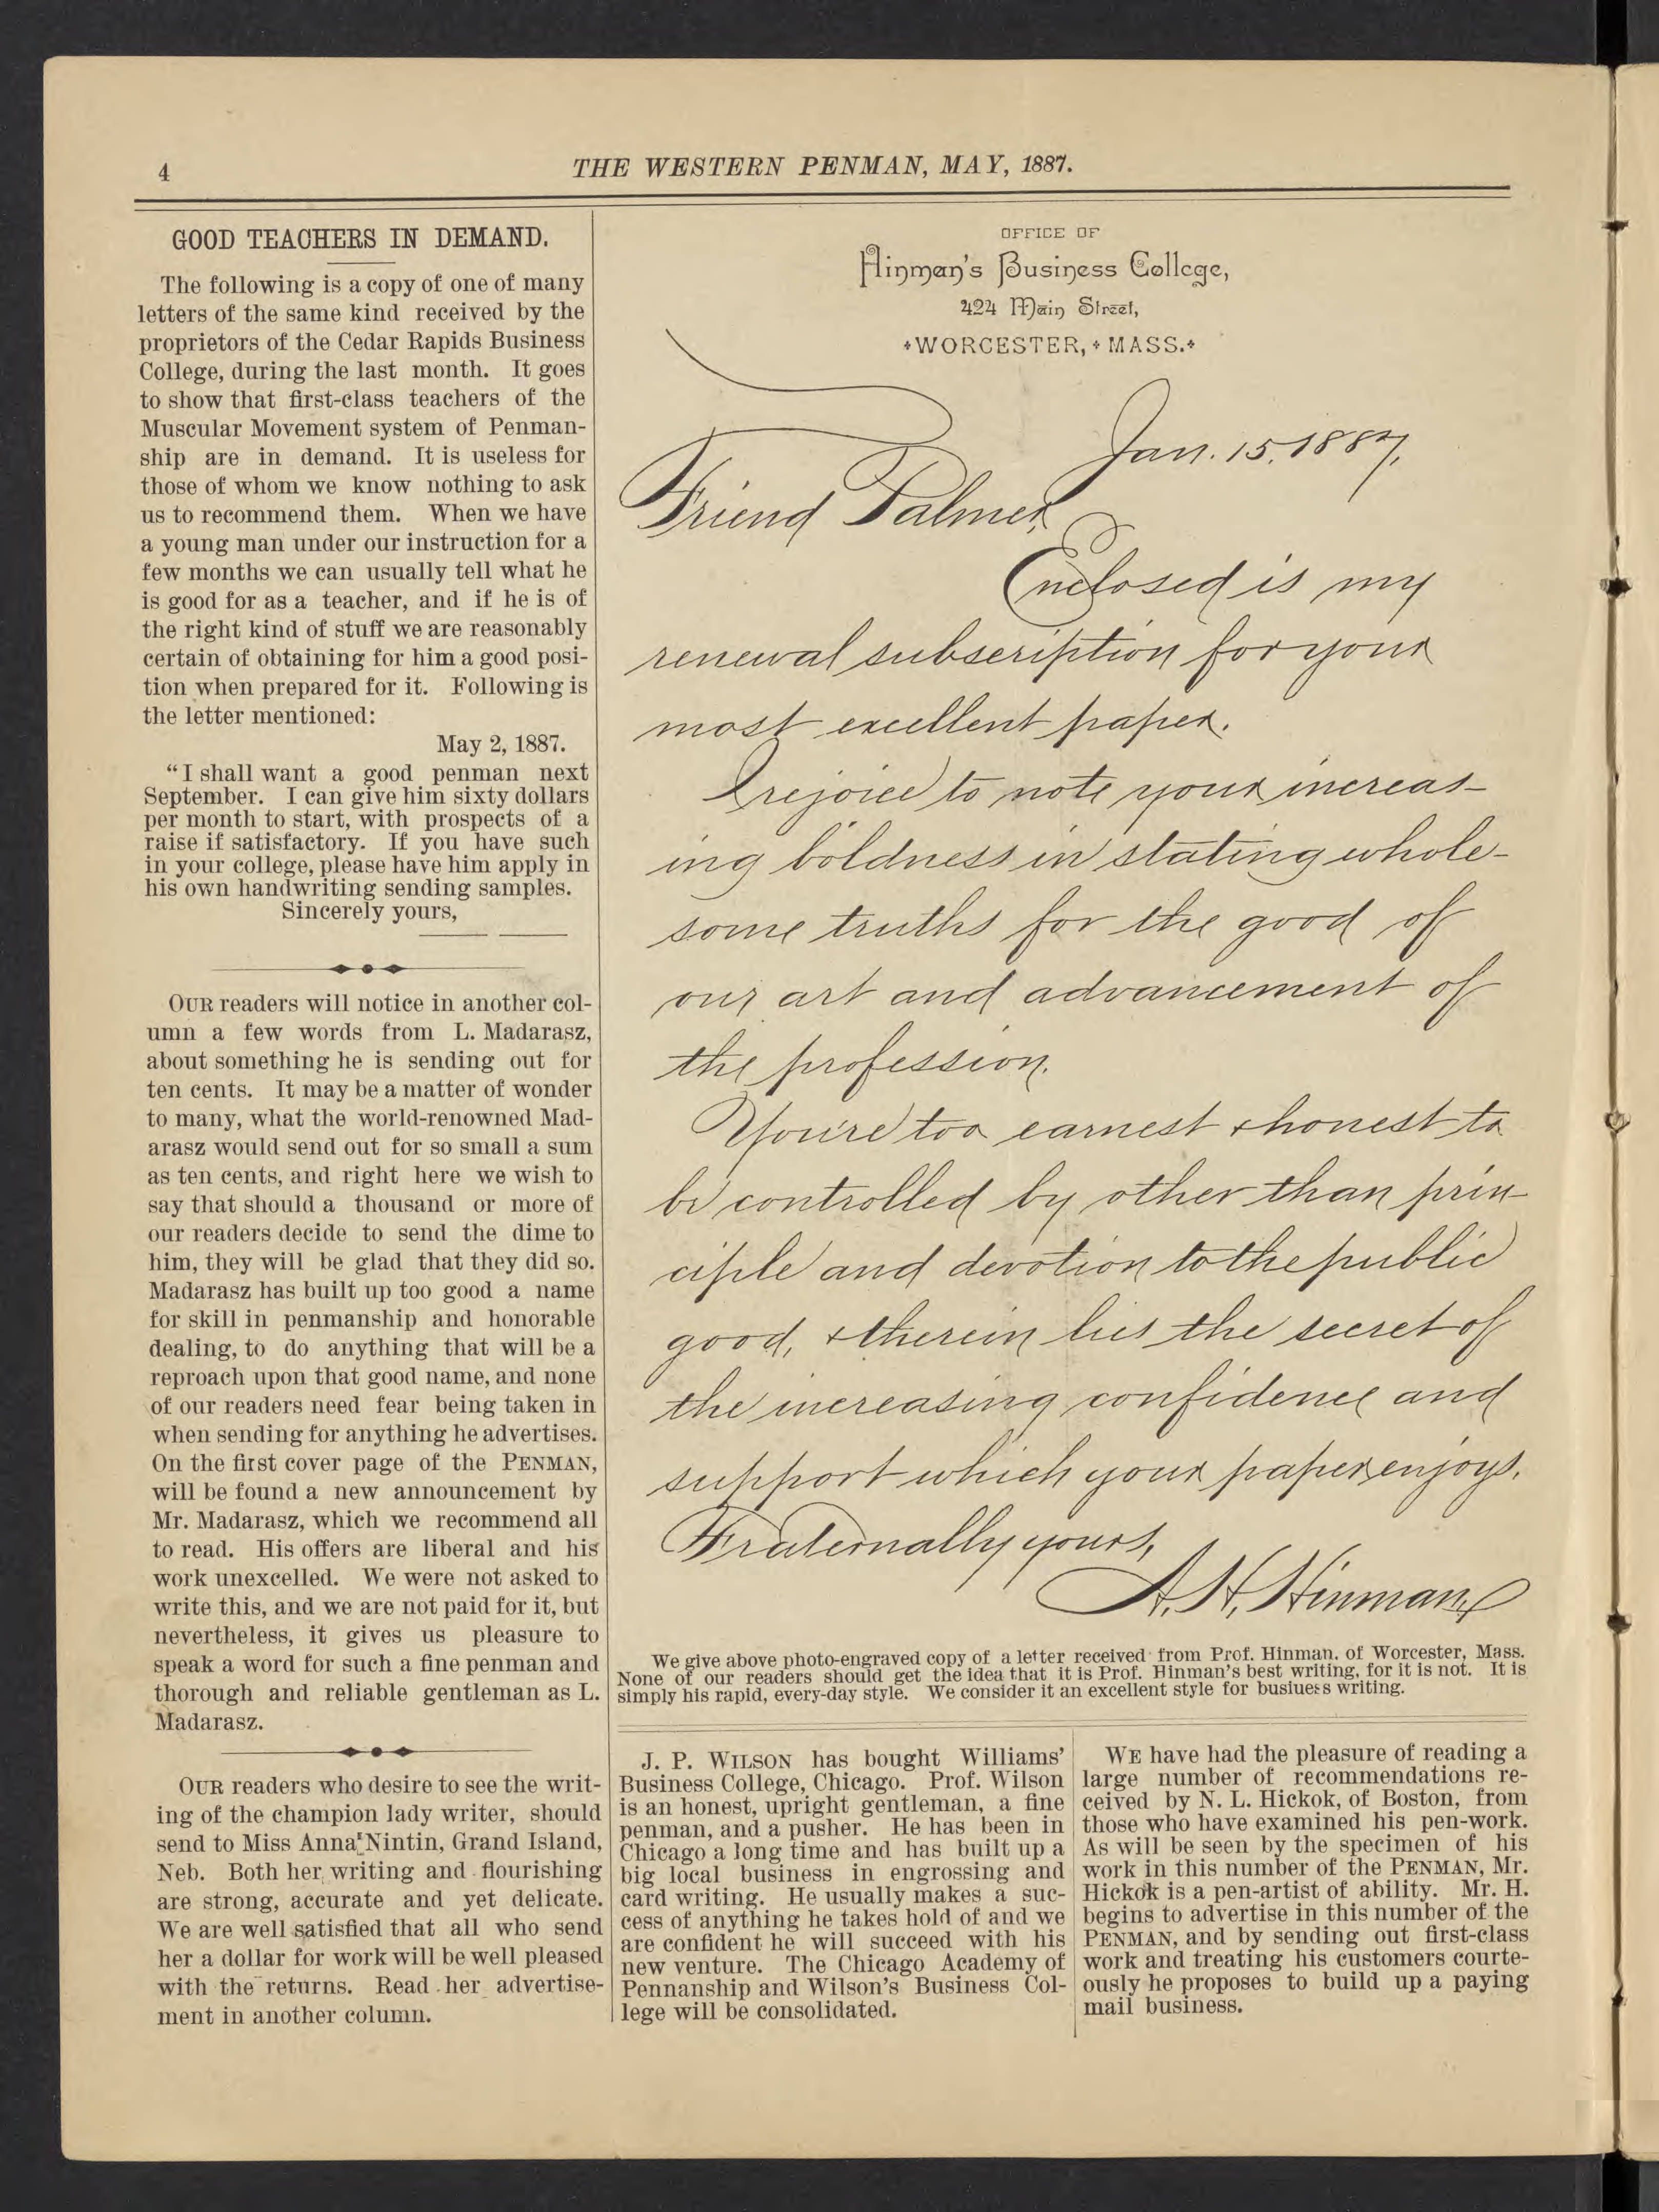 4
THE WESTERN PENMAN, MAY, 1887.
GOOD TEACHERS IN DEMAND.
The following is a copy of one of many
letters of the same kind received by the
proprietors of the Cedar Rapids Business
College, during the last month. It goes
to show that first-class teachers of the
Muscular Movement system of Penman-
ship are in demand. It is useless for
those of whom we know nothing to ask
us to recommend them. When we have
a young man under our instruction for a
few months we can usually tell what he
is good for as a teacher, and if he is of
the right kind of stuff we are reasonably
certain of obtaining for him a good posi-
tion when prepared for it. Following is
the letter mentioned:
May 2, 1887.
"I shall want a good penman next
September. I can give him sixty dollars
per month to start, with prospects of a
raise if satisfactory. If you have such
in your college, please have him apply in
his own handwriting sending samples.
Sincerely yours,
OUR readers will notice in another col-
umn a few words from L. Madarasz,
about something he is sending out for
ten cents. It may be a matter of wonder
to many, what the world-renowned Mad-
arasz would send out for so small a sum
as ten cents, and right here we wish to
say that should a thousand or more of
our readers decide to send the dime to
him, they will be glad that they did so.
Madarasz has built up too good a name
for skill in penmanship and honorable
dealing, to do anything that will be a
reproach upon that good name, and none
of our readers need fear being taken in
when sending for anything he advertises.
On the first cover page of the PENMAN,
will be found a new announcement by
Mr. Madarasz, which we recommend all
to read. His offers are liberal and his
work unexcelled. We were not asked to
write this, and we are not paid for it, but
nevertheless, it gives us pleasure to
speak a word for such a fine penman and
thorough and reliable gentleman as L.
Madarasz.
OUR readers who desire to see the writ-
ing of the champion lady writer, should
send to Miss Anna Nintin, Grand Island,
Neb. Both her writing and flourishing
are strong, accurate and yet delicate.
We are well satisfied that all who send
her a dollar for work will be well pleased
with the returns. Read her advertise-
ment in another column.
OFFICE OF
Hinman's Business College,
424 Main Street,
WORCESTER, MASS.
Jan. 15, 1887,
Friend Palmer,
Enclosed is my
renewal subscription for your
most excellent paper.
I rejoice to note your increas-
ing boldness in stating whole-
some truths for the good of
our art and advancement of
the profession.
You're too earnest & honest to
be controlled by other than prin-
ciple and devotion to the public
good, & therein lies the secret of
the increasing confidence and
support which your paper enjoys.
Fraternally yours,
A. H. Hinman
We give above photo-engraved copy of a letter received from Prof. Hinman. of Worcester, Mass.
None of our readers should get the idea that it is Prof. Hinman's best writing, for it is not. It is
simply his rapid, every-day style. We consider it an excellent style for business writing.
J. P. WILSON has bought Williams'
Business College, Chicago. Prof. Wilson
is an honest, upright gentleman, a fine
penman, and a pusher. He has been in
Chicago a long time and has built up a
big local business in engrossing and
card writing. He usually makes a suc-
cess of anything he takes hold of and we
are confident he will succeed with his
new venture. The Chicago Academy of
Pennanship and Wilson's Business Col-
lege will be consolidated.
WE have had the pleasure of reading a
large number of recommendations re-
ceived by N. L. Hickok, of Boston, from
those who have examined his pen-work.
As will be seen by the specimen of his
work in this number of the PENMAN, Mr.
Hickok is a pen-artist of ability. Mr. H.
begins to advertise in this number of the
PENMAN, and by sending out first-class
work and treating his customers courte-
ously he proposes to build up a paying
mail business.